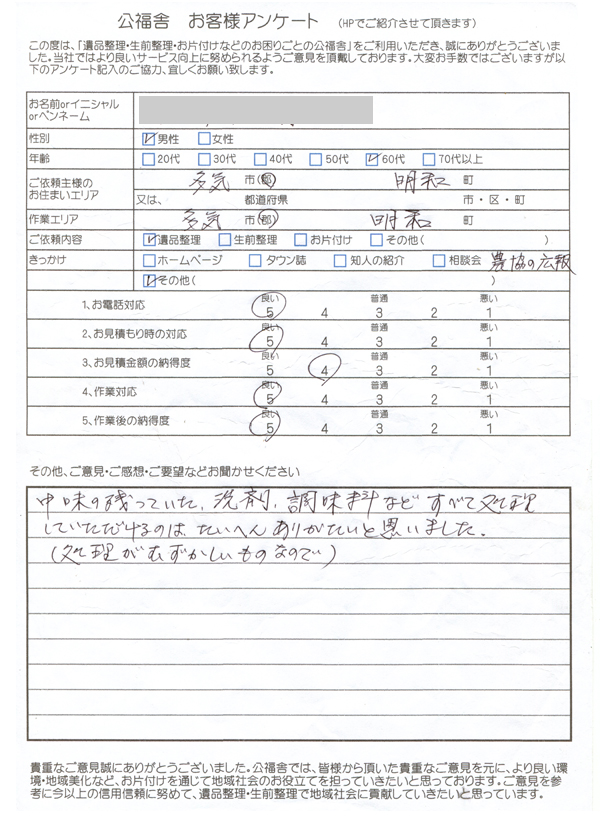 公福舎 お客様アンケート (HPでご紹介させて頂きます)
この度は、「遺品整理・生前整理・お片付けなどのお困りごとの公福舎」をご利用いただき、誠にありがとうございま
した。当社ではより良いサービス向上に努められるようご意見を頂戴しております。大変お手数ではございますが以
下のアンケート記入のご協力、宜しくお願い致します。
お名前orイニシャル
orペンネーム
性別 男性 女性
年齢 20代 30代 40代 50代 60代 70代以上
ご依頼主様の
お住まいエリア
多気 市(郡) 明和 町
又は、 都道府県 市・区・町
作業エリア 多気 市(郡) 明和 町
ご依頼内容 遺品整理 生前整理 お片付け その他( )
きっかけ ホームページ タウン誌 知人の紹介 相談会 農協の広報
その他( )
良い 普通 悪い
1、お電話対応 5 4 3 2 1
良い 普通 悪い
2、お見積もり時の対応 5 4 3 2 1
良い 普通 悪い
3、お見積金額の納得度 5 4 3 2 1
良い 普通 悪い
4、作業対応 5 4 3 2 1
良い 普通 悪い
5、作業後の納得度 5 4 3 2 1
その他、ご意見・ご感想・ご要望などお聞かせください
中味の残っていた、洗剤、調味料などすべて処理
していただけるのは、たいへんありがたいと思いました。
(処理がむずかしいものなので)
貴重なご意見誠にありがとうございました。公福舎では、皆様から頂いた貴重なご意見を元に、より良い環
境・地域美化など、お片付けを通じて地域社会のお役立てを担っていきたいと思っております。ご意見を参
考に今以上の信用信頼に努めて、遺品整理・生前整理で地域社会に貢献していきたいと思っています。